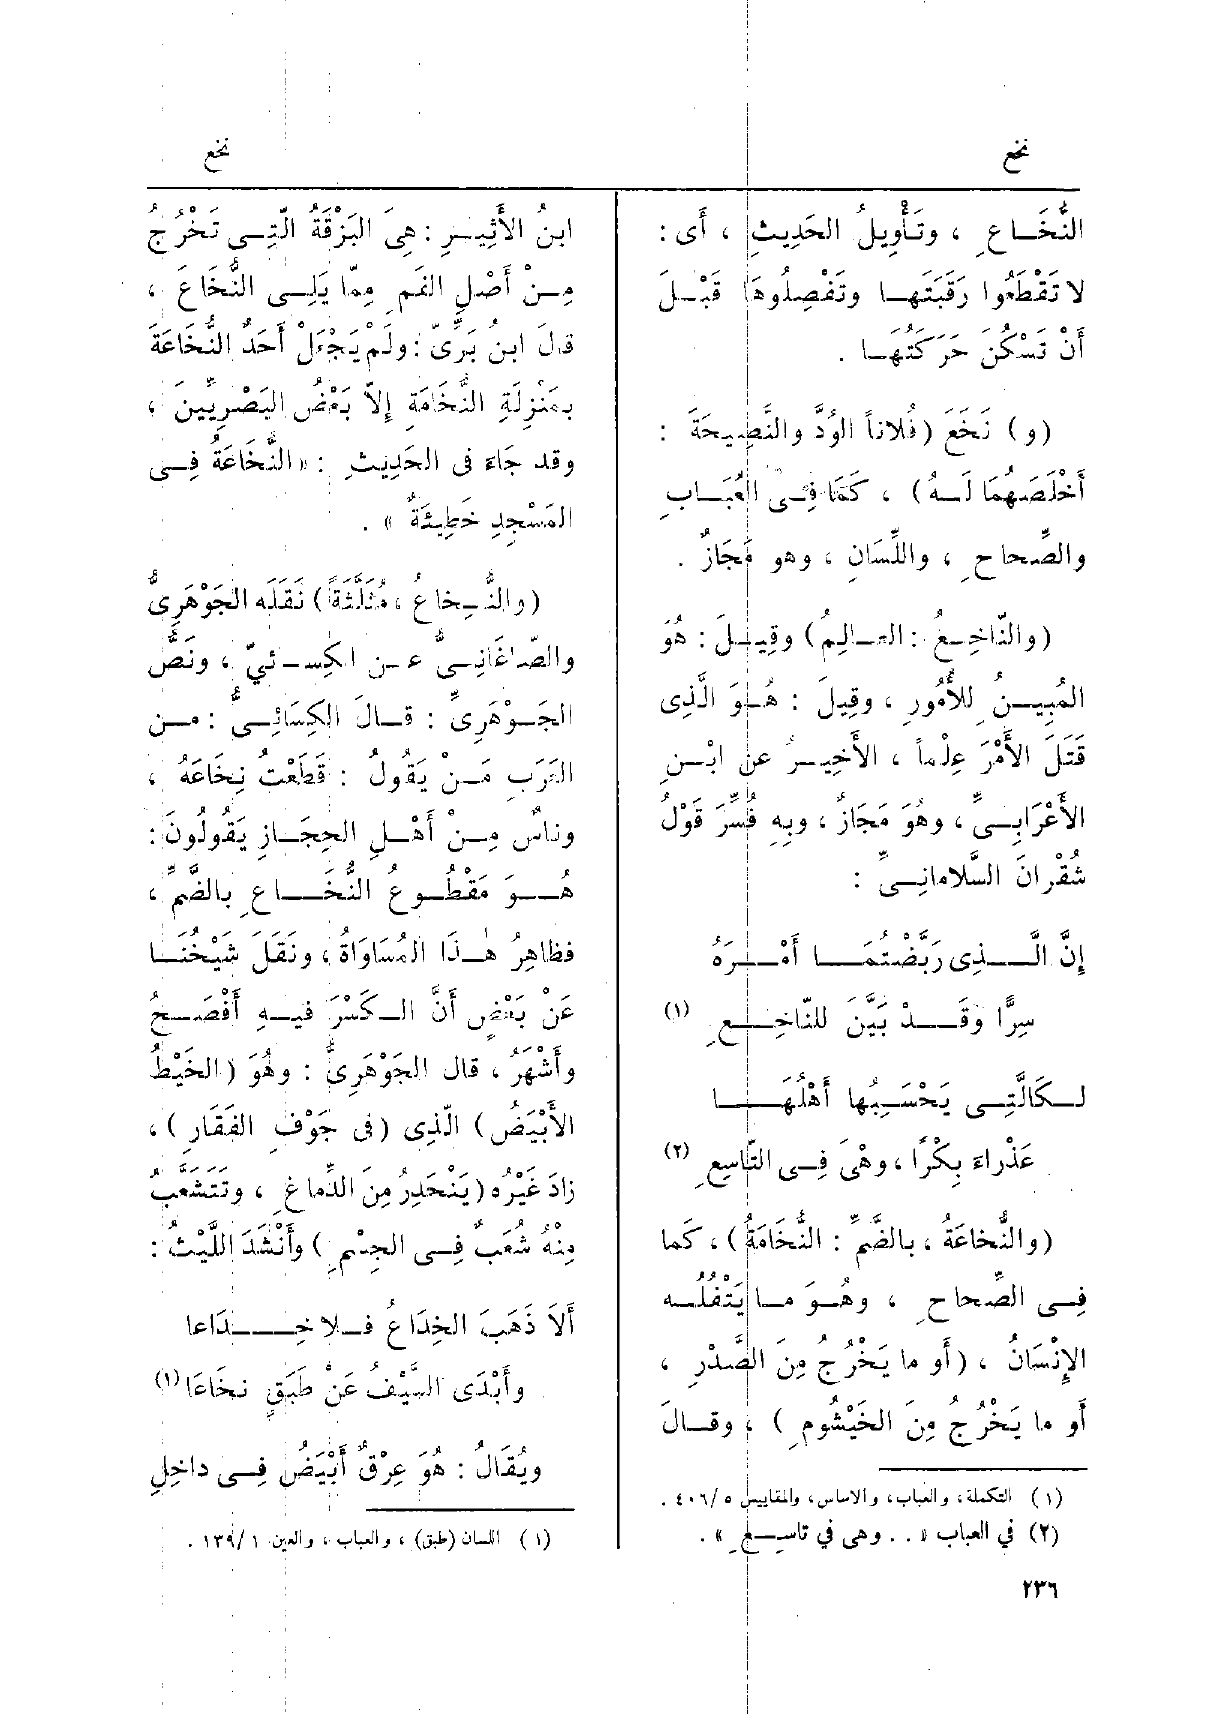 نخع
نخع
النُّخَاعِ ، وتَأْوِيلُ الحَدِيثِ ، أَى :
لا تَقْطَعُوا رَقَبَتَها وتَفْصِلُوهَا قَبْلَ
أَنْ تَسْكُنَ حَرَكَتُها .
(و) نَخَعَ (فُلاناً الوُدَّ والنَّصِيحَةَ :
أَخْلَصَهُمَا لَهُ) ، كَمَا فِى العُبَابِ
والصِّحاحِ ، واللِّسَانِ ، وهو مَجَازٌ .
(والنَّاخِعُ : العالِمُ) وقِيلَ : هُوَ
المُبِينُ لِلأُمُورِ ، وقِيلَ : هُوَ الَّذِى
قَتَلَ الأَمْرَ عِلْماً ، الأَخِيرُ عن ابْنِ
الأَعْرَابِىِّ ، وهُوَ مَجَازٌ ، وبِهِ فُسِّرَ قَوْلُ
شُقْرانَ السَّلامانِىِّ :
إِنَّ الَّذِى رَبَّضْتُمَا أَمْرَهُ
سِرًّا وَقَدْ بَيَّنَ للنَّاخِعِ (١)
لَكَالَّتِى يَحْسَبُها أَهْلُهَا
عَذْراءَ بِكْرًا ، وهْىَ فِى التَّاسِعِ (٢)
(والنُّخاعَةُ ، بالضَّمِّ : النُّخَامَةُ) ، كَما
فِى الصِّحاحِ ، وهُوَ ما يَتْفُلُه
الإِنْسَانُ ، (أَو ما يَخْرُجُ مِنَ الصَّدْرِ ،
أَو ما يَخْرُجُ مِنَ الخَيْشُومِ) ، وقالَ
(١) التكملة، والعباب، والاساس، والمقاييس ٤٠٦/٥ .
(٢) في العباب « . . وهى في تاسِعِ » .
٢٣٦
ابنُ الأَثِيرِ : هِىَ البَزْقَةُ الَّتِى تَخْرُجُ
مِنْ أَصْلِ الفَمِ مِمّا يَلِى النُّخَاعَ ،
قالَ ابنُ بَرِّىّ : ولَمْ يَجْعَلْ أَحَدٌ النُّخَاعَةَ
بمَنْزِلَةِ النُّخَامَةِ إِلاّ بَعْضُ البَصْرِيِّينَ ،
وقد جَاءَ فى الحَدِيثِ : « النُّخَاعَةُ فِى
المَسْجِدِ خَطِيئَةٌ » .
(والنُّخاعُ ، مُثَلَّثَةً) نَقَلَه الجَوْهَرِىُّ
والصّاغَانِىُّ عن الكِسائيّ ، ونَصُّ
الجَوْهَرِىِّ : قالَ الكِسَائِىُّ : من
العَرَبِ مَنْ يَقُولُ : قَطَعْتُ نِخَاعَهُ ،
وناسٌ مِنْ أَهْلِ الحِجَازِ يَقُولُونَ :
هُوَ مَقْطُوعُ النُّخَاعِ بالضَّمِّ ،
فظاهِرُ هٰذَا المُسَاوَاةُ ، ونَقَلَ شَيْخُنَا
عَنْ بَعْضٍ أَنَّ الكَسْرَ فيهِ أَفْصَحُ
وأَشْهَرُ ، قال الجَوْهَرِىُّ : وهُوَ (الخَيْطُ
الأَبْيَضُ) الّذِى (فى جَوْفِ الفَقَارِ) ،
زادَ غَيْرُه (يَنْحَدِرُ مِنَ الدِّماغِ ، وتَتَشَعَّبُ
مِنْهُ شُعَبٌ فِى الجِسْمِ) وأَنْشَدَ اللَّيْثُ :
أَلاَ ذَهَبَ الخِدَاعُ فلا خِدَاعا
وأَبْدَى السَّيْفُ عَنْ طَبَقٍ نخَاعَا (١)
ويُقَالُ : هُوَ عِرْقٌ أَبْيَضُ فِى داخِلِ
(١) اللسان (طبق) ، والعباب ، والعين ١٣٩/١ .